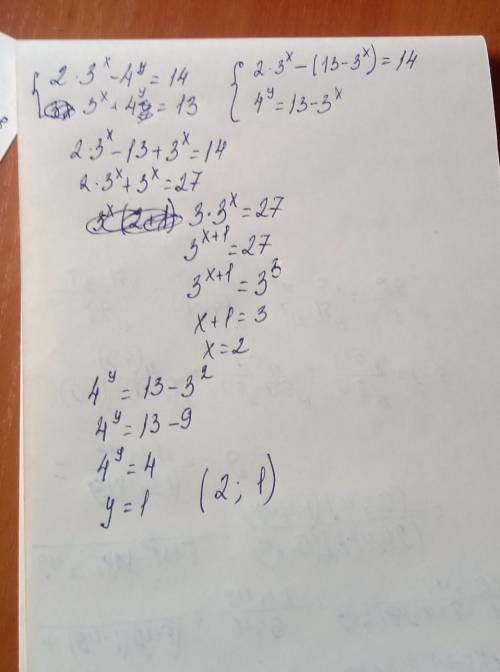 2·3ˣ-4ʸ=14
3ˣ+4ʸ=13
2·3ˣ-(13-3ˣ)=14
4ʸ=13-3ˣ
2·3ˣ-13+3ˣ=14
2·3ˣ+3ˣ=27
3·3ˣ=27
3ˣ⁺¹=27
3ˣ⁺¹=3³
x+1=3
x=2
4ʸ=13-3²
4ʸ=13-9
4ʸ=4
y=1 (2; 1)